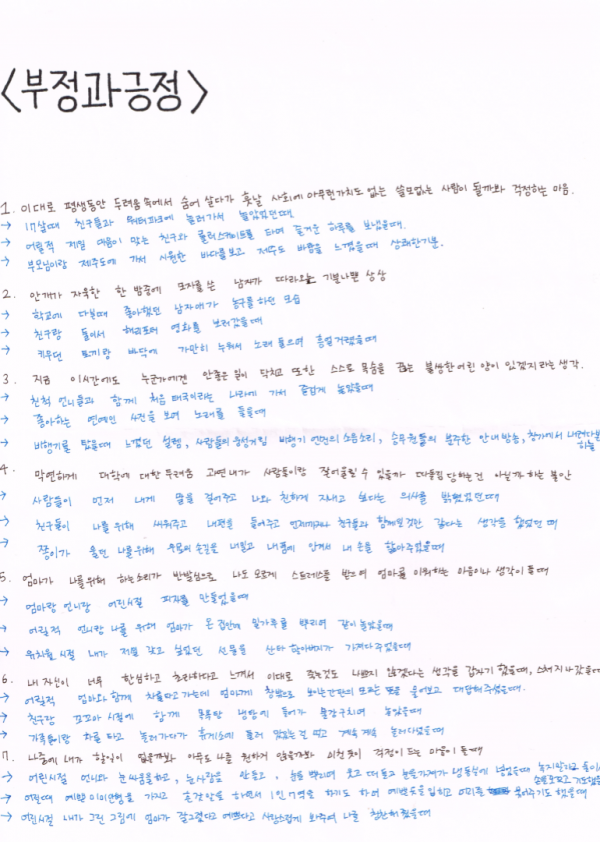 <부정과긍정>
1. 이대로 평생동안 두려움속에서 숨어 살다가 훗날 사회에 아무런가치도 없는 쓸모없는 사람이 될까봐 걱정하는 마음.
→ 17살때 친구들과 워터파크에 놀러가서 놀았었던때.
→ 어릴적 제일 마음이 맞는 친구와 롤러스케이트를 타며 즐거운 하루를 보냈을때.
→ 부모님이랑 제주도에 가서 시원한 바다를보고 제주도 바람을 느꼈을때 상쾌한기분.
2. 안개가 자욱한 한 밤중에 모자를 쓴 남자가 따라오는 기분나쁜 상상
→ 학교에 다닐때 좋아했던 남자애가 농구를 하던 모습
→ 친구랑 둘이서 해리포터 영화를 보러갔을때
→ 키우던 토끼랑 바닥에 가만히 누워서 노래 들으며 흥얼거렸을때
3. 지금 이시간에도 누군가에겐 안좋은 일이 닥치고 또한 스스로 목숨을 끊는 불쌍한어린 양이 있겠지라는 생각.
→ 친척 언니들과 함께 처음 태국이라는 나라에 가서 즐겁게 놀았을때
→ 좋아하는 연예인 사진을 보며 노래를 들을때
→ 비행기를 탔을때 느꼈던 설렘, 사람들의 웅성거림 비행기 엔진의 소음소리, 승무원들의 분주한 안내방송, 창가에서 내려다본 하늘
4. 막연하게 대학에 대한 두려움 과연 내가 사람들이랑 잘어울릴 수 있을까 따돌림 당하는건 아닐까 하는 불안
→ 사람들이 먼저 내게 말을 걸어주고 나와 친하게 지내고 싶다는 의사를 밝혔었던때
→ 친구들이 나를위해 싸워주고 내편을 들어주고 언제까지나 친구들과 함께일것만 같다는 생각을 했었던 때
→ 쫑이가 울던 나를위해 위로의 손길을 내밀고 내품에 안겨서 내 손을 핥아주었을때
5. 엄마가 나를위해 하는소리가 반발심으로 나도 모르게 스트레스를 받으며 엄마를 미워하는 마음이나 생각이 들때
→ 엄마랑 언니랑 어린시절 피자를 만들었을때
→ 어릴적 언니랑 나를 위해 엄마가 온 집안에 밀가루를 뿌리며 같이놀았을때
→ 유치원시절 내가 제일 갖고 싶었던 선물을 산타 할아버지가 가져다주었을때
6. 내 자신이 너무 한심하고 초라하다고 느껴서 이대로 죽는것도 나쁘지 않겠다는 생각을 갑자기 했을때, 스쳐지나갔을때
→ 어릴적 엄마와함께 차를타고가는데 엄마에게 창밖으로 보이는간판의 모르는 뜻을 물어보고 대답해주셨을때.
→ 친구랑 꼬꼬마 시절에 함께 목욕탕 냉탕에 들어가 물장구치며 놀았을때
→ 가족들이랑 차를 타고 놀러가다가 휴게소에 들러 맛있는걸 먹고 계속계속 놀러다녔을때
7. 나중에 내가 할일이 없을까봐 아무도 나를 원하지 않을까봐 미친듯이 걱정이 드는 마음이 들때
→ 어린시절 언니와 눈싸움을하고, 눈사람을 만들고, 눈을 뿌리며 웃고 떠들고 눈을가져가 냉동실에 넣었을때 녹지말라고
→ 어릴때 예쁜 미미인형을 가지고 혼잣말을 하면서 1인 7역을 하기도 하며 예쁜옷을입히고 머리를 묶어주기도 했을때
→ 어린시절 내가 그린 그림에 엄마가 잘그렸다고 예쁘다고 사랑스럽게 봐주며 나를 칭찬해줬을때